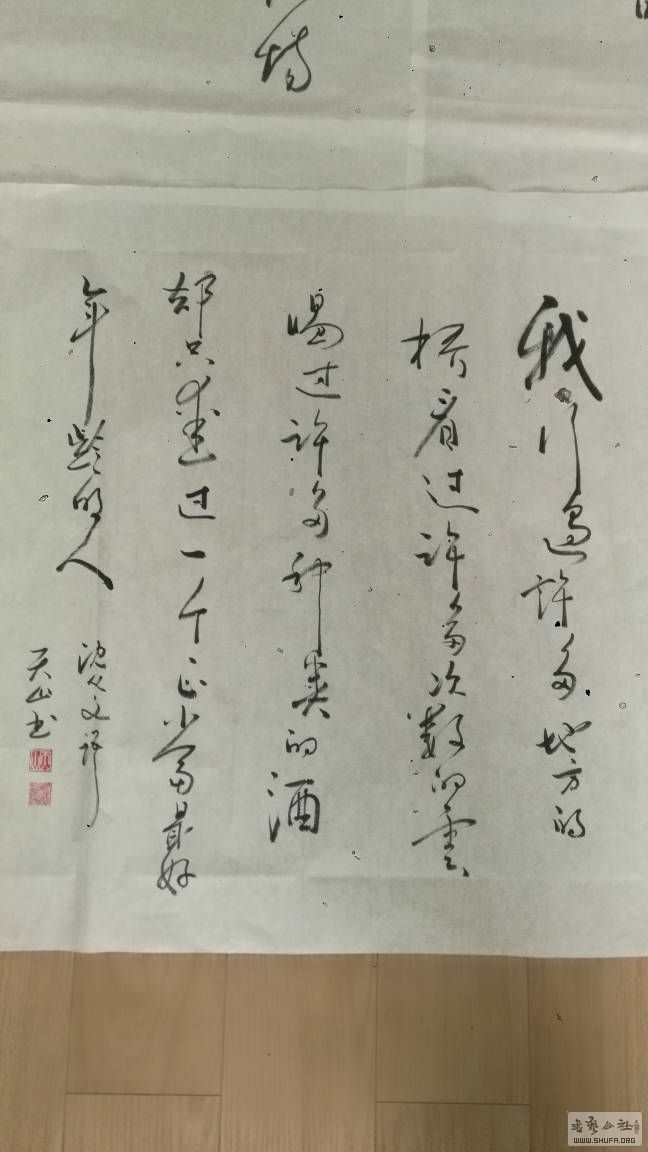 我行過許多地方的
桥看过許多次數的雲
喝过許多种类的酒
却只愛过一个正當最好
年龄的人
沈从文
天山书
书艺公社
WWW.SHUFA.ORG